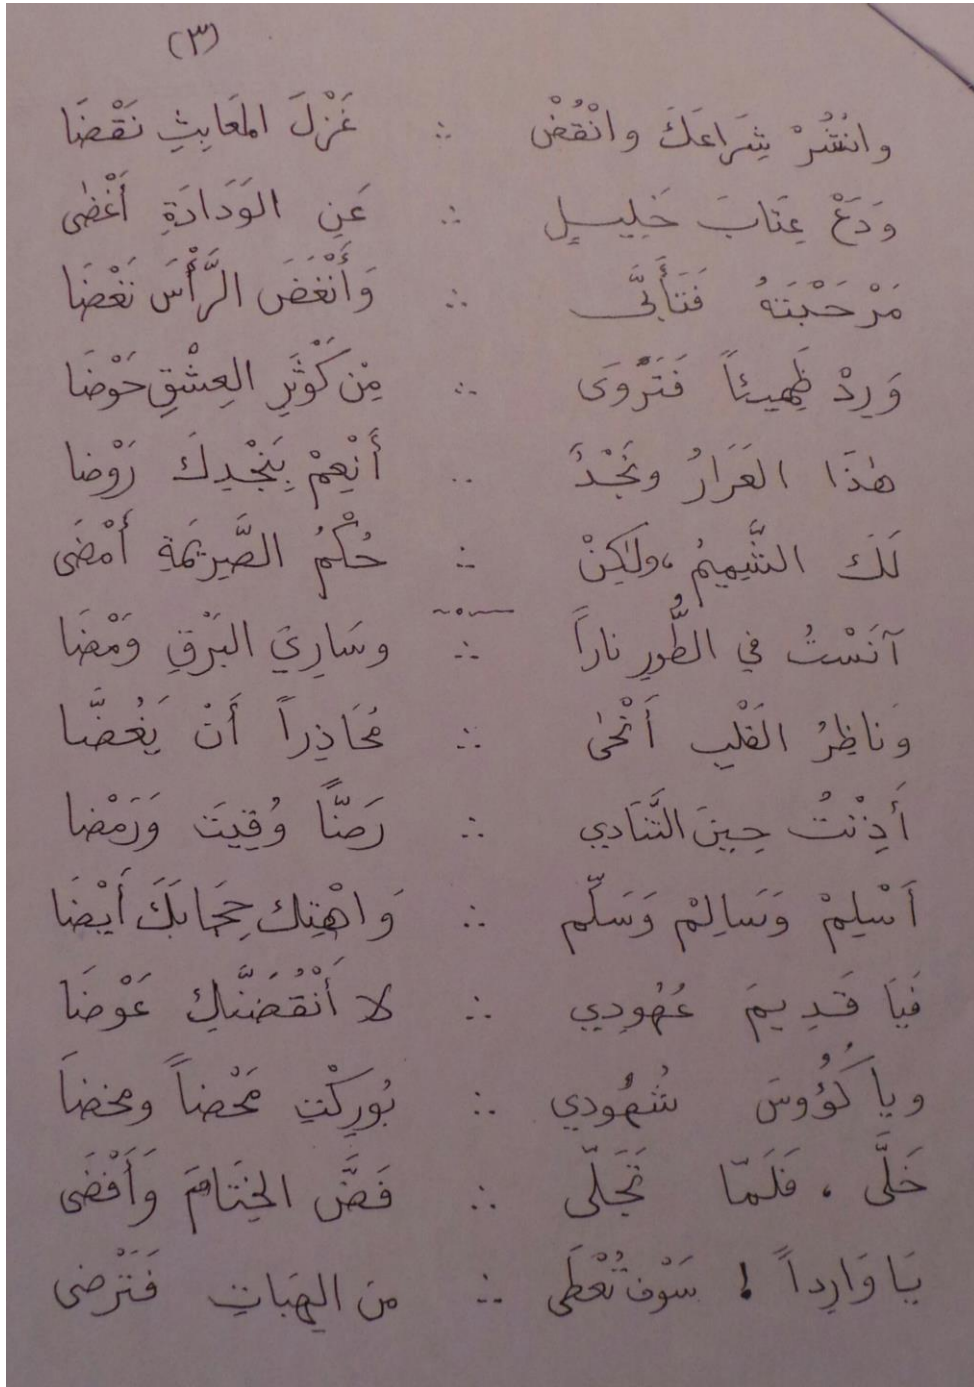 (٣)
وانْشُرْ شِرَاعَكَ وانْقُضْ ∴ غَزْلَ المَعَابِثِ نَقْضَا
وَدَعْ عِتَابَ خَلِيلٍ ∴ عَنِ الوَدَادَةِ أَغْضَى
مَرْحَبْتَهُ فَتَأَبَّى ∴ وَأَنْغَضَ الرَّأْسَ نَغْضَا
وَرِدْ ظَمِيئاً فَتَرْوَى ∴ مِنْ كَوْثَرِ العِشْقِ حَوْضَا
هٰذَا العَرَارُ ونَجْدٌ ∴ أَنْعِمْ بِنَجْدِكَ رَوْضا
لَكَ الشَّمِيمُ، ولٰكِنْ ∴ حُكْمُ الصَّرِيمَةِ أَمْضَى
آنَسْتُ في الطُّورِ ناراً ∴ وسَارِيَ البَرْقِ وَمْضَا
وَناظِرُ القَلْبِ أَنْحَى ∴ مُحَاذِراً أَنْ يَغُضَّا
أَذِنْتُ حِينَ التَّنَادِي ∴ رَضّاً وُقِيتَ وَرَمْضا
أَسْلِمْ وَسَالِمْ وَسَلِّم ∴ وَاهْتِك حِجَابَكَ أَيْضَا
فَيَا قَدِيمَ عُهُودِي ∴ لا أَنْقُضَنَّكِ عَوْضَا
ويا كُؤُوسَ شُهُودِي ∴ بُورِكْتِ مَحْضاً ومخضاَ
خَلَّى، فَلَمّا تَجَلّى ∴ فَضَّ الخِتَامَ وَأَفْضَى
يَا وَارِداً! سَوْفَ تُعْطَى ∴ منَ الهِبَاتِ فَتَرْضى